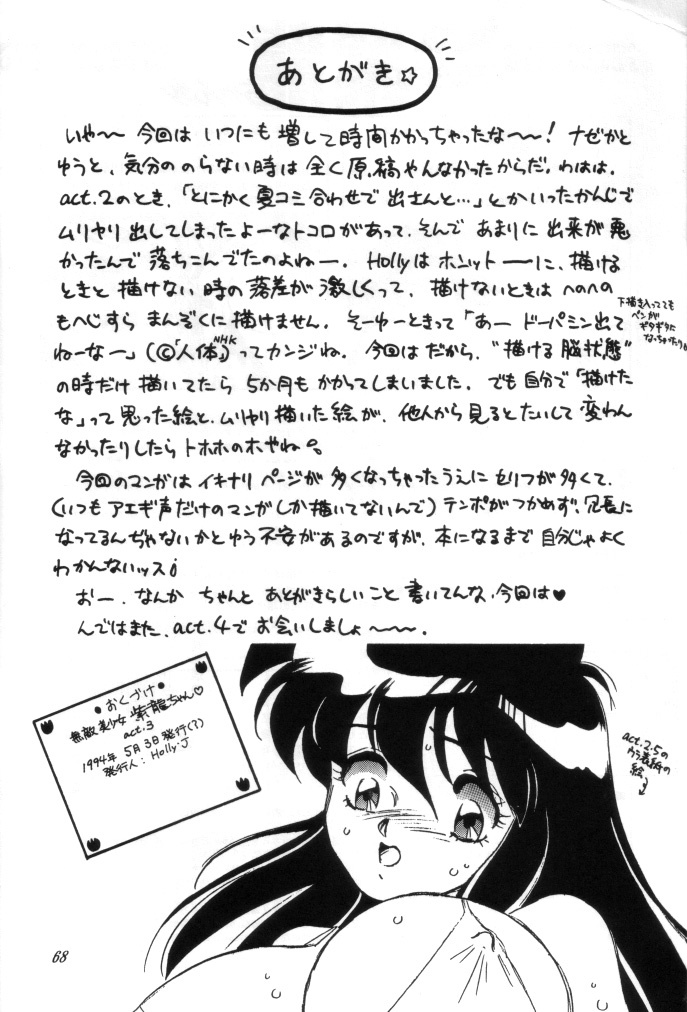 あとがき☆
いや〜〜 今回は いつにも 増して時間かかっちゃったな〜〜！ ナゼかと
ゆうと、気分の のらない時は 全く原稿やんなかったからだ。わはは。
act.2のとき、「とにかく夏コミ合わせで 出さんと…」とかいったかんじで
ムリヤリ 出してしまったよーなトコロがあって、そんで あまりに 出来が 悪
かったんで 落ちこんでたのよねー。 Hollyは ホンットーーに、描ける
ときと 描けない 時の落差が 激しくって、描けないときは へのへの
もへじすら まんぞくに描けません。そーゆーときって「あー ドーパミン出て
ねーなー」(©「人体」NHK)ってカンジね。 今回は だから、"描ける 脳状態"
の時だけ 描いてたら 5か月も かかってしまいました。でも自分で「描けた
な」って 思った絵と、ムリヤリ 描いた 絵が、他人から 見ると たいして 変わん
なかったりしたら トホホのホやね。
今回のマンガは イキナリ ページが 多くなっちゃったうえに セリフが多くて、
(いつも アエギ声だけのマンガしか描いてないんで) テンポがつかめず、冗長に
なってるんぢゃないかとゆう不安があるのですが、本になるまで 自分じゃよく
わかんないッス
おー、なんか ちゃんと あとがきらしいこと 書いてんな、今回は♥
んではまた、act.4で お会いしましょ〜〜〜。
下描き入ってても
ペンが
ギタギタに
なっちゃったり
●おくづけ●
無敵美少女 紫龍ちゃん♡
act.3
1994年 5月3日発行(?)
発行人：Holly.J
act.2.5の
ウラ表紙の
絵
68